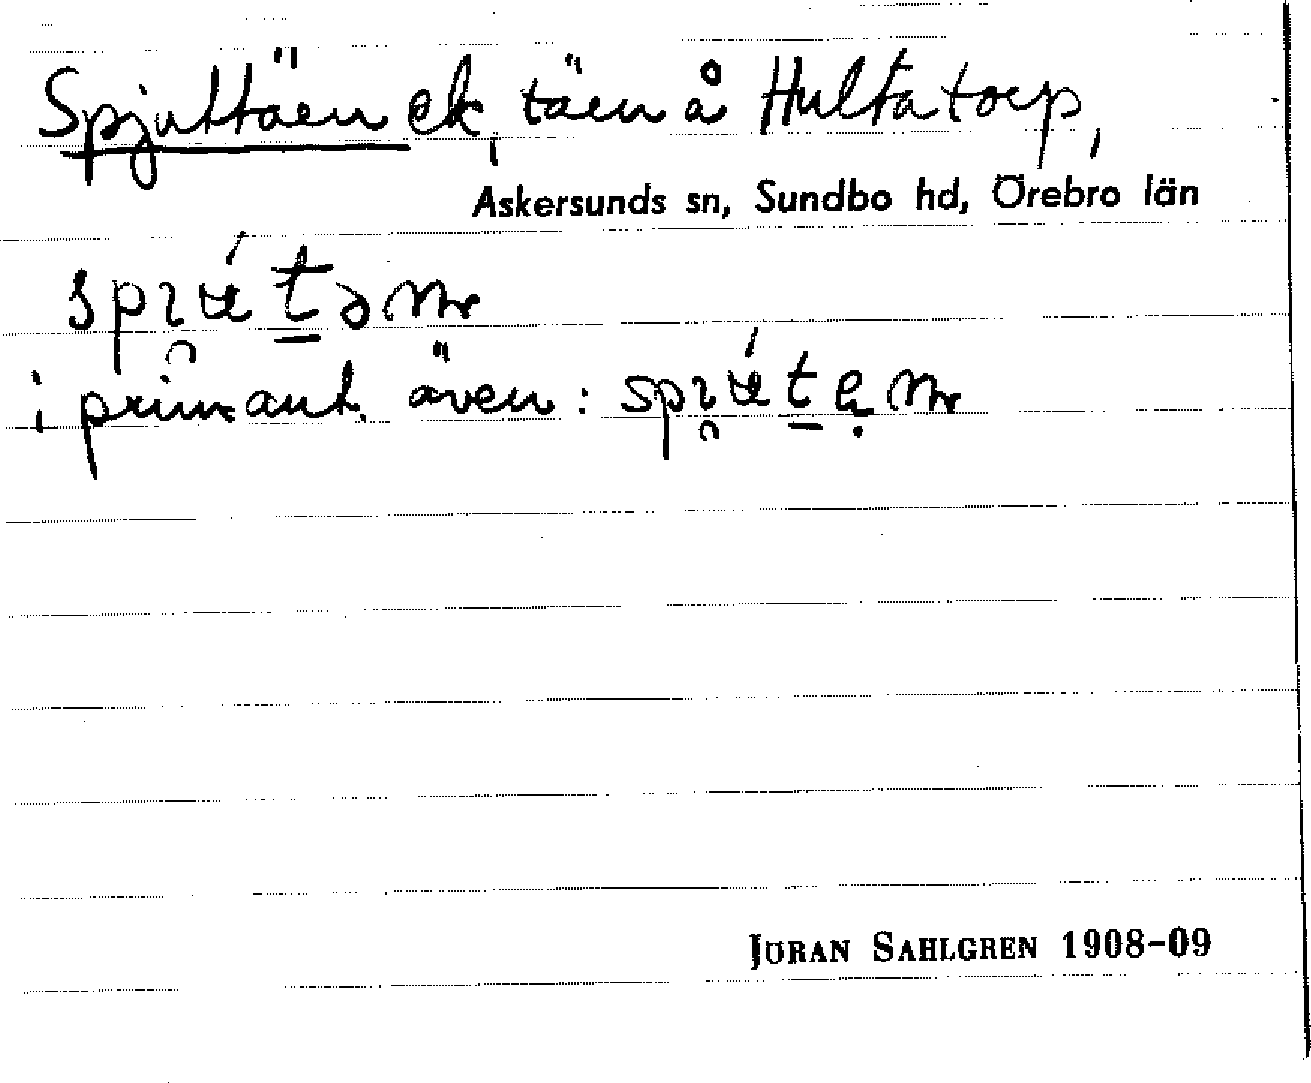 Spjuttäen ek, täen å Hultatorp,
Askersunds sn, Sundbo hd, Örebro län
i prim.ant. även:
JÖRAN SAHLGREN 1908-09